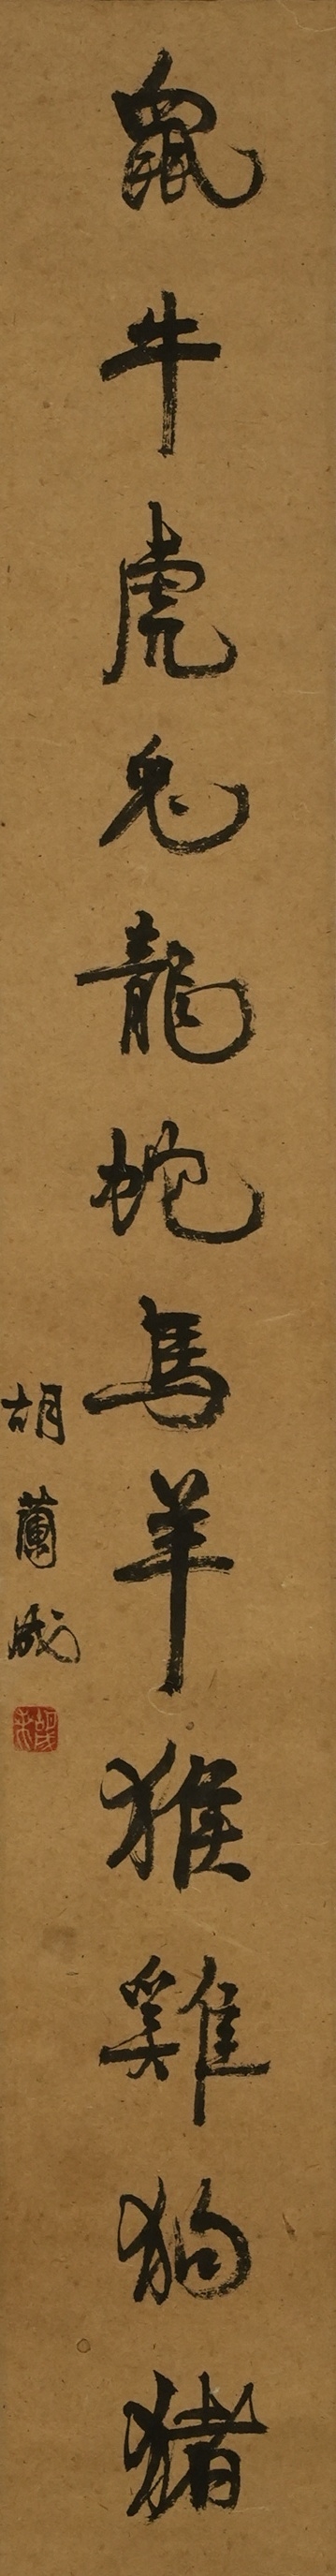 鼠牛虎兔龍蛇馬羊猴雞狗猪
胡蘭成